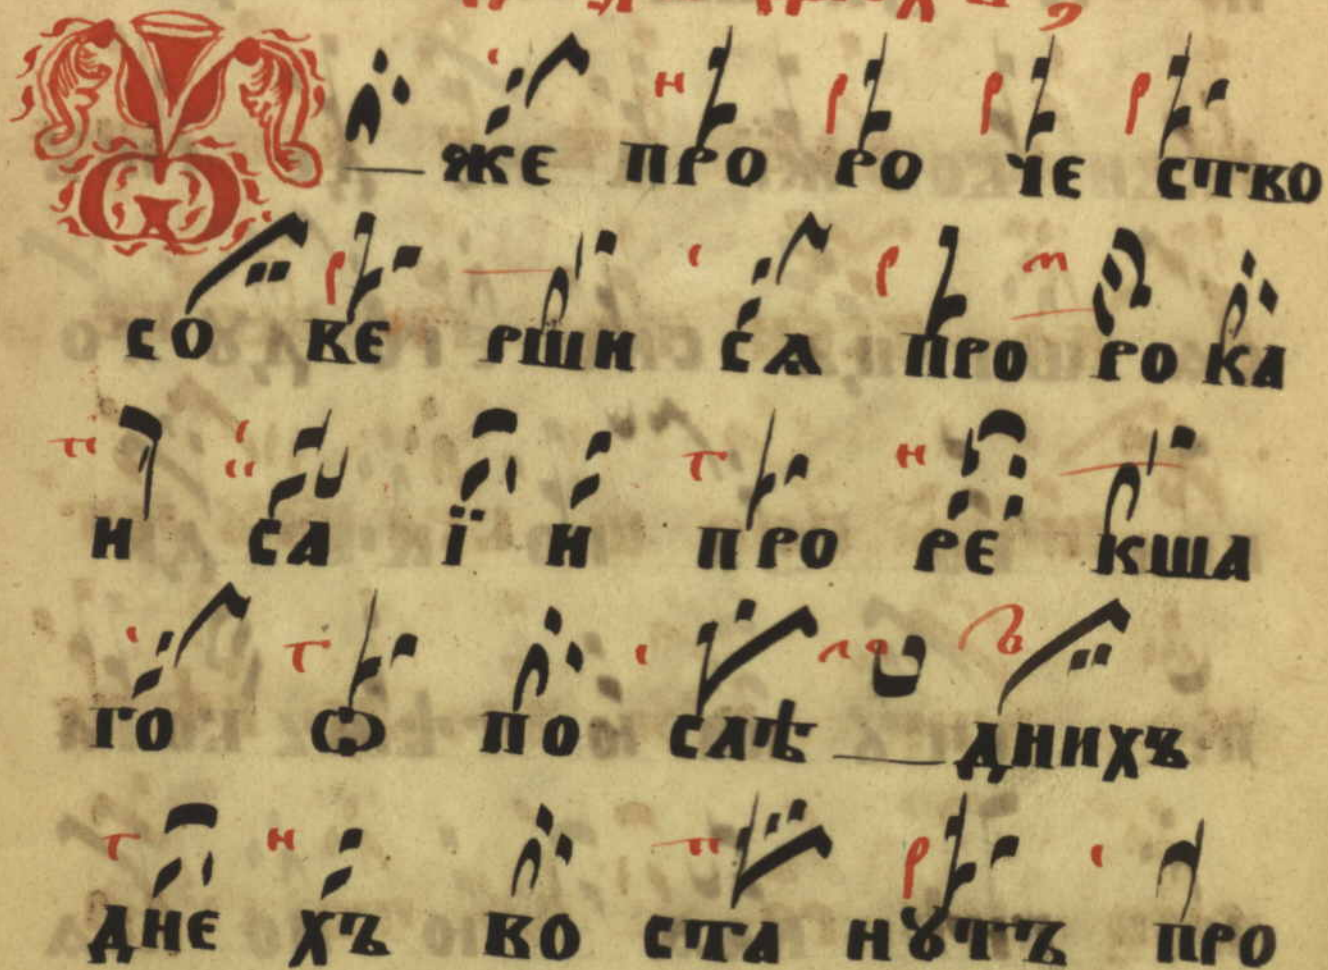 Ѹ же про ро че ство
со ве рши сѧ про ро ка
и са ї и про ре кша
го ѡ по слѣ днихъ
дне хъ во ста нꙋтъ про